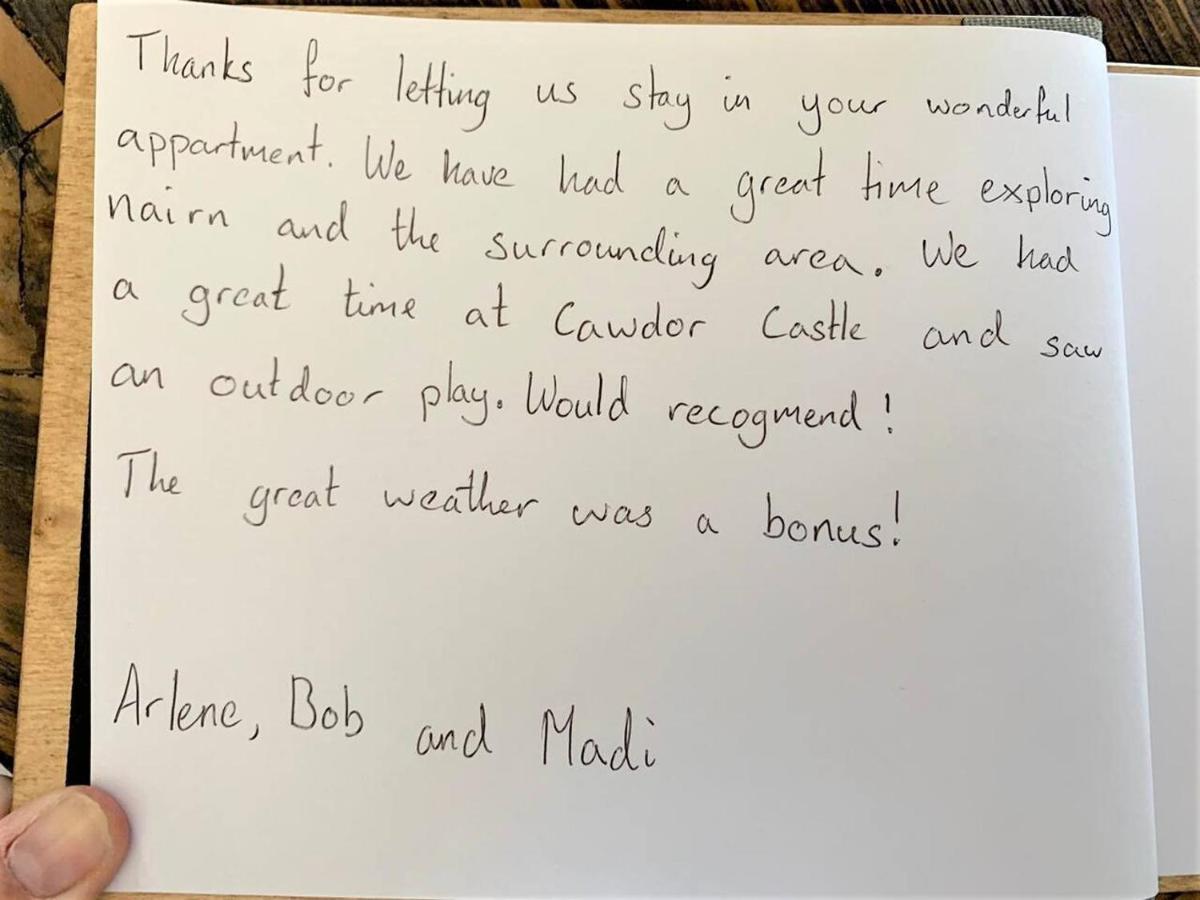 Thanks for letting us stay in your wonderful
appartment. We have had a great time exploring
nairn and the surrounding area. We had
a great time at Cawdor Castle and saw
an outdoor play. Would recogmend!
The great weather was a bonus!
Arlene, Bob and Madi